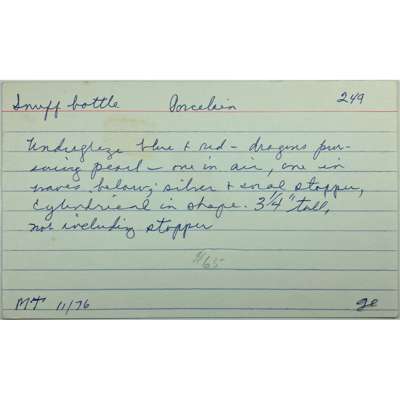 Snuff bottle Porcelain 249
Underglaze blue & red - dragons pur-
suing pearl - one in air, one in
waves below; silver & coral stopper,
Cylindrical in shape. 3 1/4" tall,
not including stopper
65
MT 11/76 ge